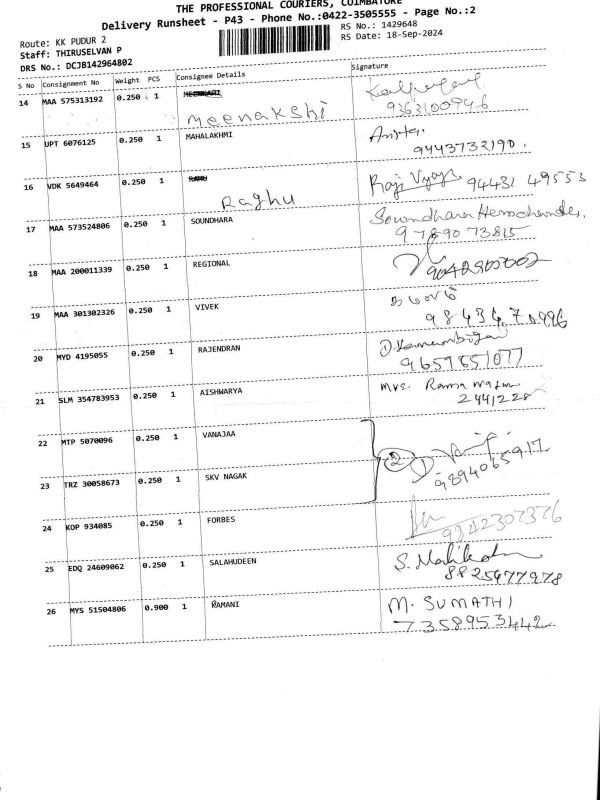 THE PROFESSIONAL COURIERS, COIMBATORE
Delivery Runsheet - P43 - Phone No.:0422-3505555 - Page No.:2
Route: KK PUDUR 2
RS No.: 1429648
Staff: THIRUSELVAN P
RS Date: 18-Sep-2024
DRS No.: DCJB142964802
S No Consignment No Weight PCS Consignee Details Signature
14 MAA 575313192 0.250 1 MEENAKARI
Meenakshi 9363100946
15 UPT 6076125 0.250 1 MAHALAKHMI Anita.
9443732190.
16 VDK 5649464 0.250 1 RAMU
Raghu Raji Vijay 94431 49553
17 MAA 573524806 0.250 1 SOUNDHARA Soundhara Hemachander,
9789073815
18 MAA 200011339 0.250 1 REGIONAL
19 MAA 301302326 0.250 1 VIVEK
20 MYD 4195055 0.250 1 RAJENDRAN
9659851077
21 SLM 354783953 0.250 1 AISHWARYA Mrs. Rama
2441228
22 MTP 5070096 0.250 1 VANAJAA
2
23 TRZ 30058673 0.250 1 SKV NAGAK 9894065917
24 KOP 934085 0.250 1 FORBES
9842302376
25 EDQ 24609062 0.250 1 SALAHUDEEN S.
8825477978
26 MYS 51504806 0.900 1 RAMANI M. SUMATHI
7358953442